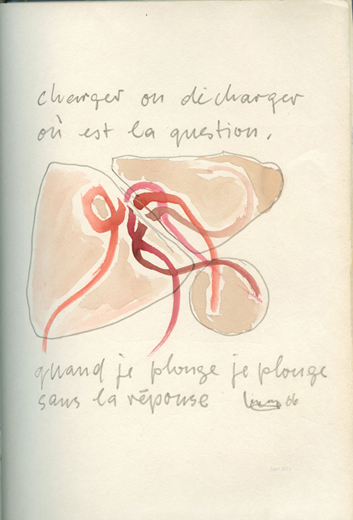 charger ou décharger
où est la question.
quand je plonge je plonge
sans la réponse
06